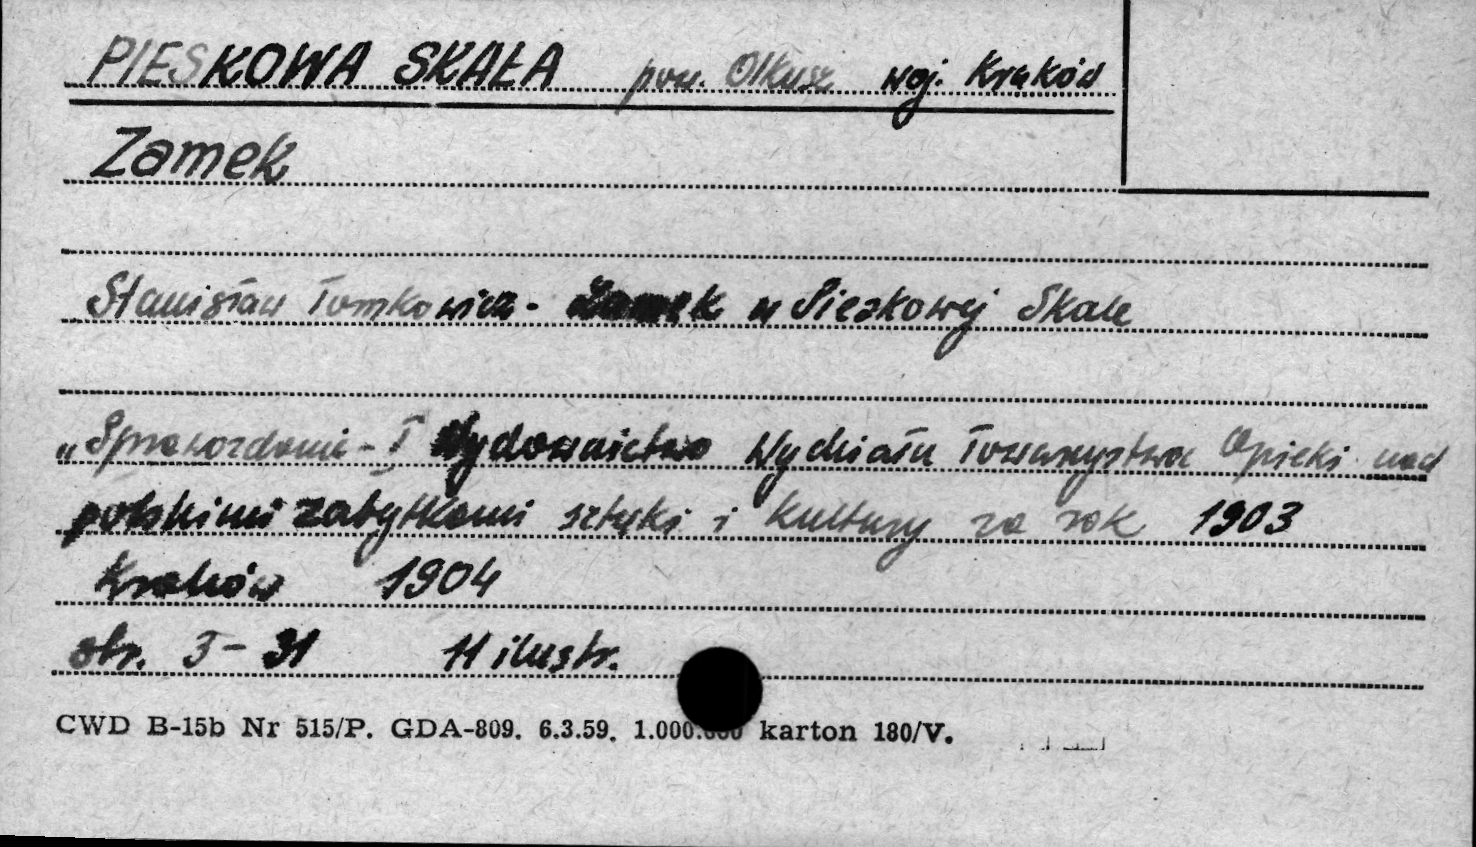 PIESKOWA SKAŁA pow. Olkusz woj. Kraków
Zamek
Stanisław Tomkowicz - Zamek w Pieskowej Skale
„Sprawozdanie - I Wydawnictwo Wydziału Towarzystwa Opieki nad
polskimi zabytkami sztuki i kultury za rok 1903
Kraków 1904
str. 3-31 11 ilustr.
CWD B-15b Nr 515/P. GDA-809. 6.3.59. 1.000.000 karton 180/V.